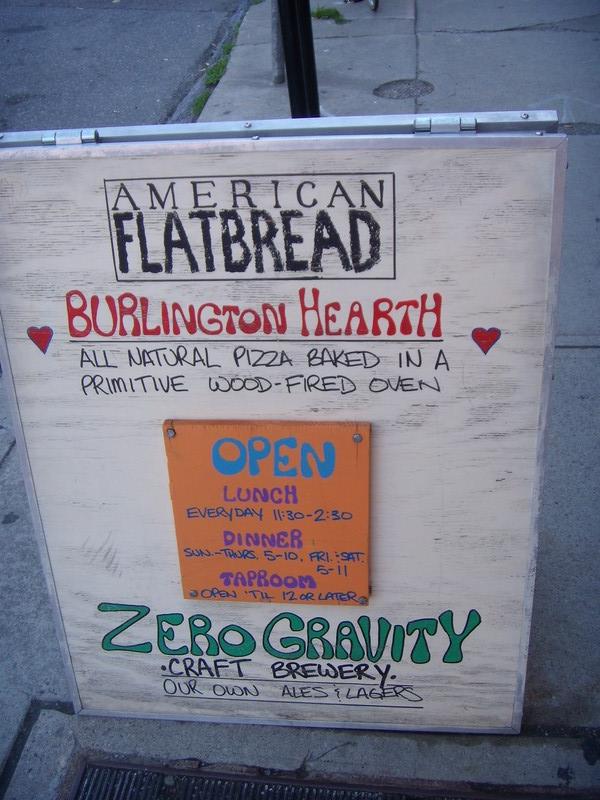 AMERICAN
FLATBREAD
BURLINGTON HEARTH
ALL NATURAL PIZZA BAKED IN A
PRIMITIVE WOOD-FIRED OVEN
OPEN
LUNCH
EVERYDAY 11:30-2:30
DINNER
SUN.-THURS. 5-10, FRI.+SAT.
5-11
TAPROOM
OPEN 'TIL 12 OR LATER
ZERO GRAVITY
·CRAFT BREWERY·
OUR OWN ALES & LAGERS